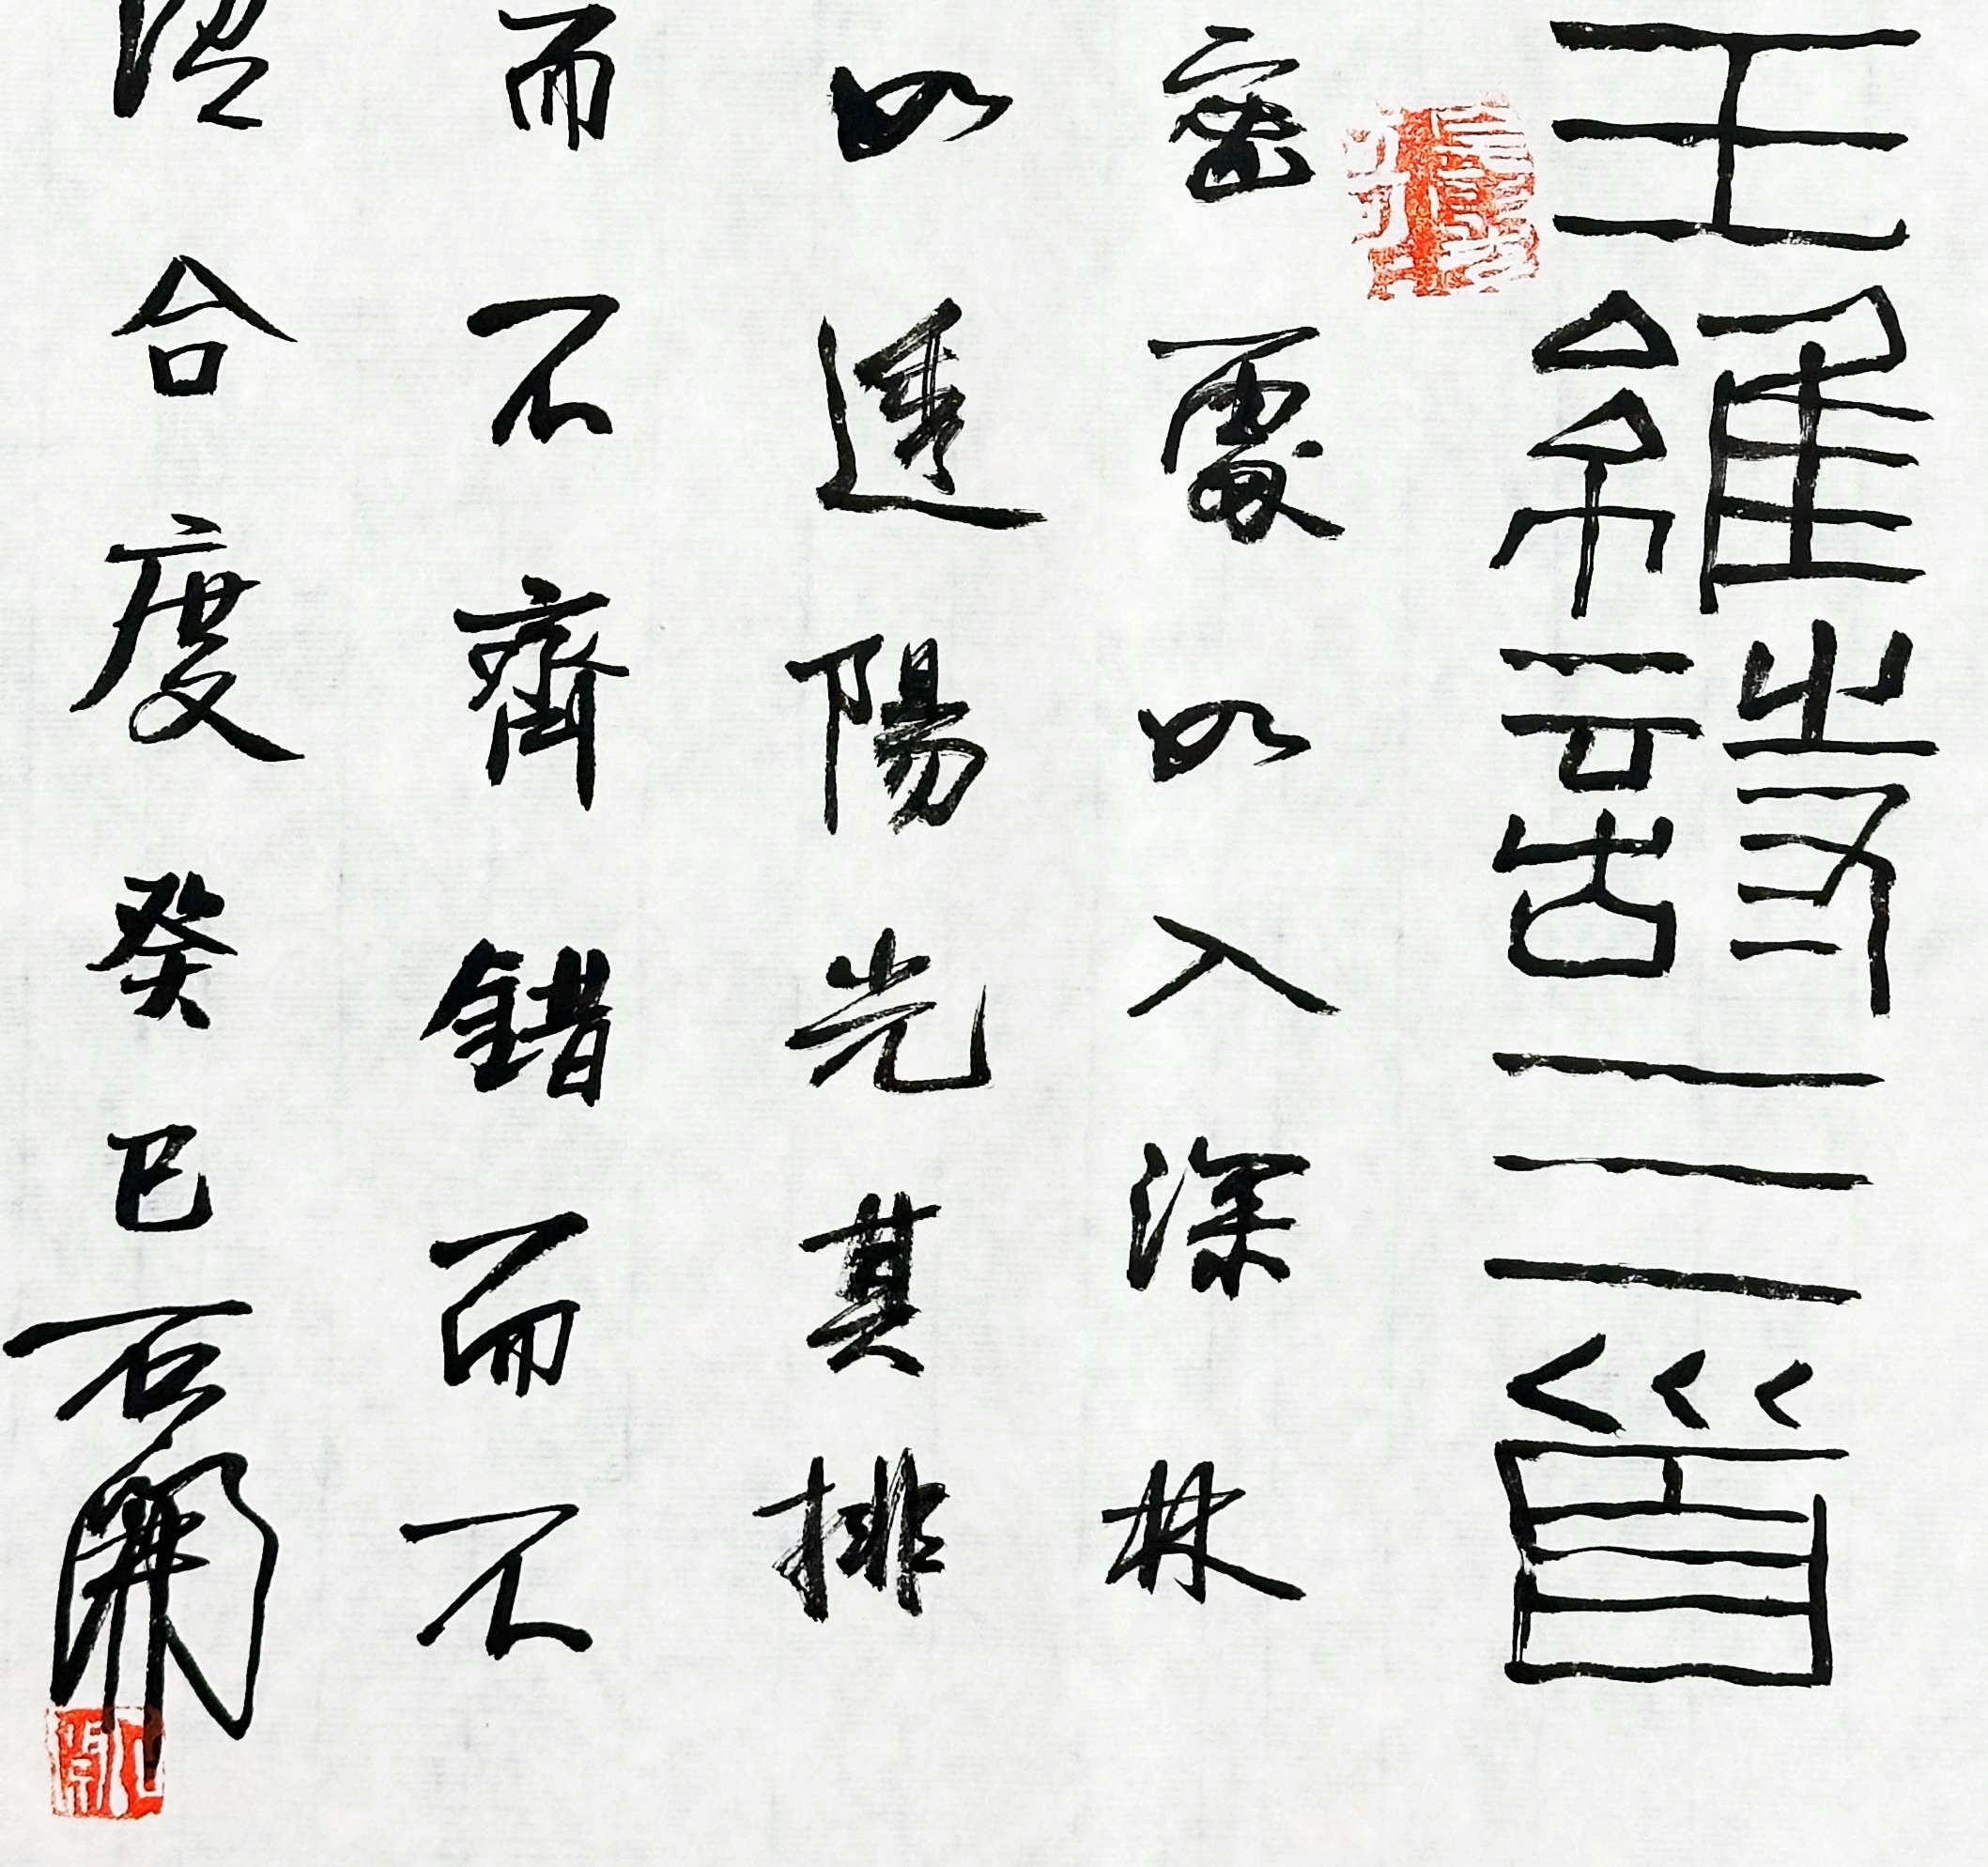 王維詩三首
密處如入深林
如透陽光其排
而不齊錯而不
合度癸巳石開